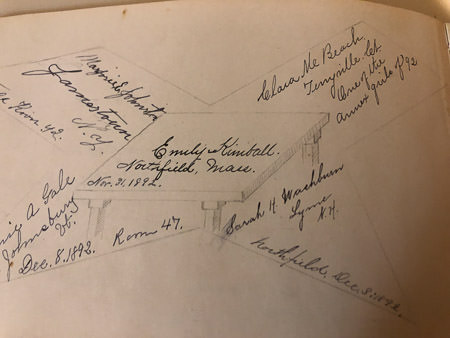 Marjorie E. Johnston
Jamestown
N.Y.
Room 42.
Clara Mc Beach
Terryville Ct.
One of the
annex girls of '92
Emily Kimball.
Northfield, Mass.
Nov. 21, 1892.
A Gale
Johnsbury
Vt.
Dec. 8. 1892. Room 47.
Sarah H. Washburn
Lyme
N.H.
Northfield, Dec. 8, 1892.